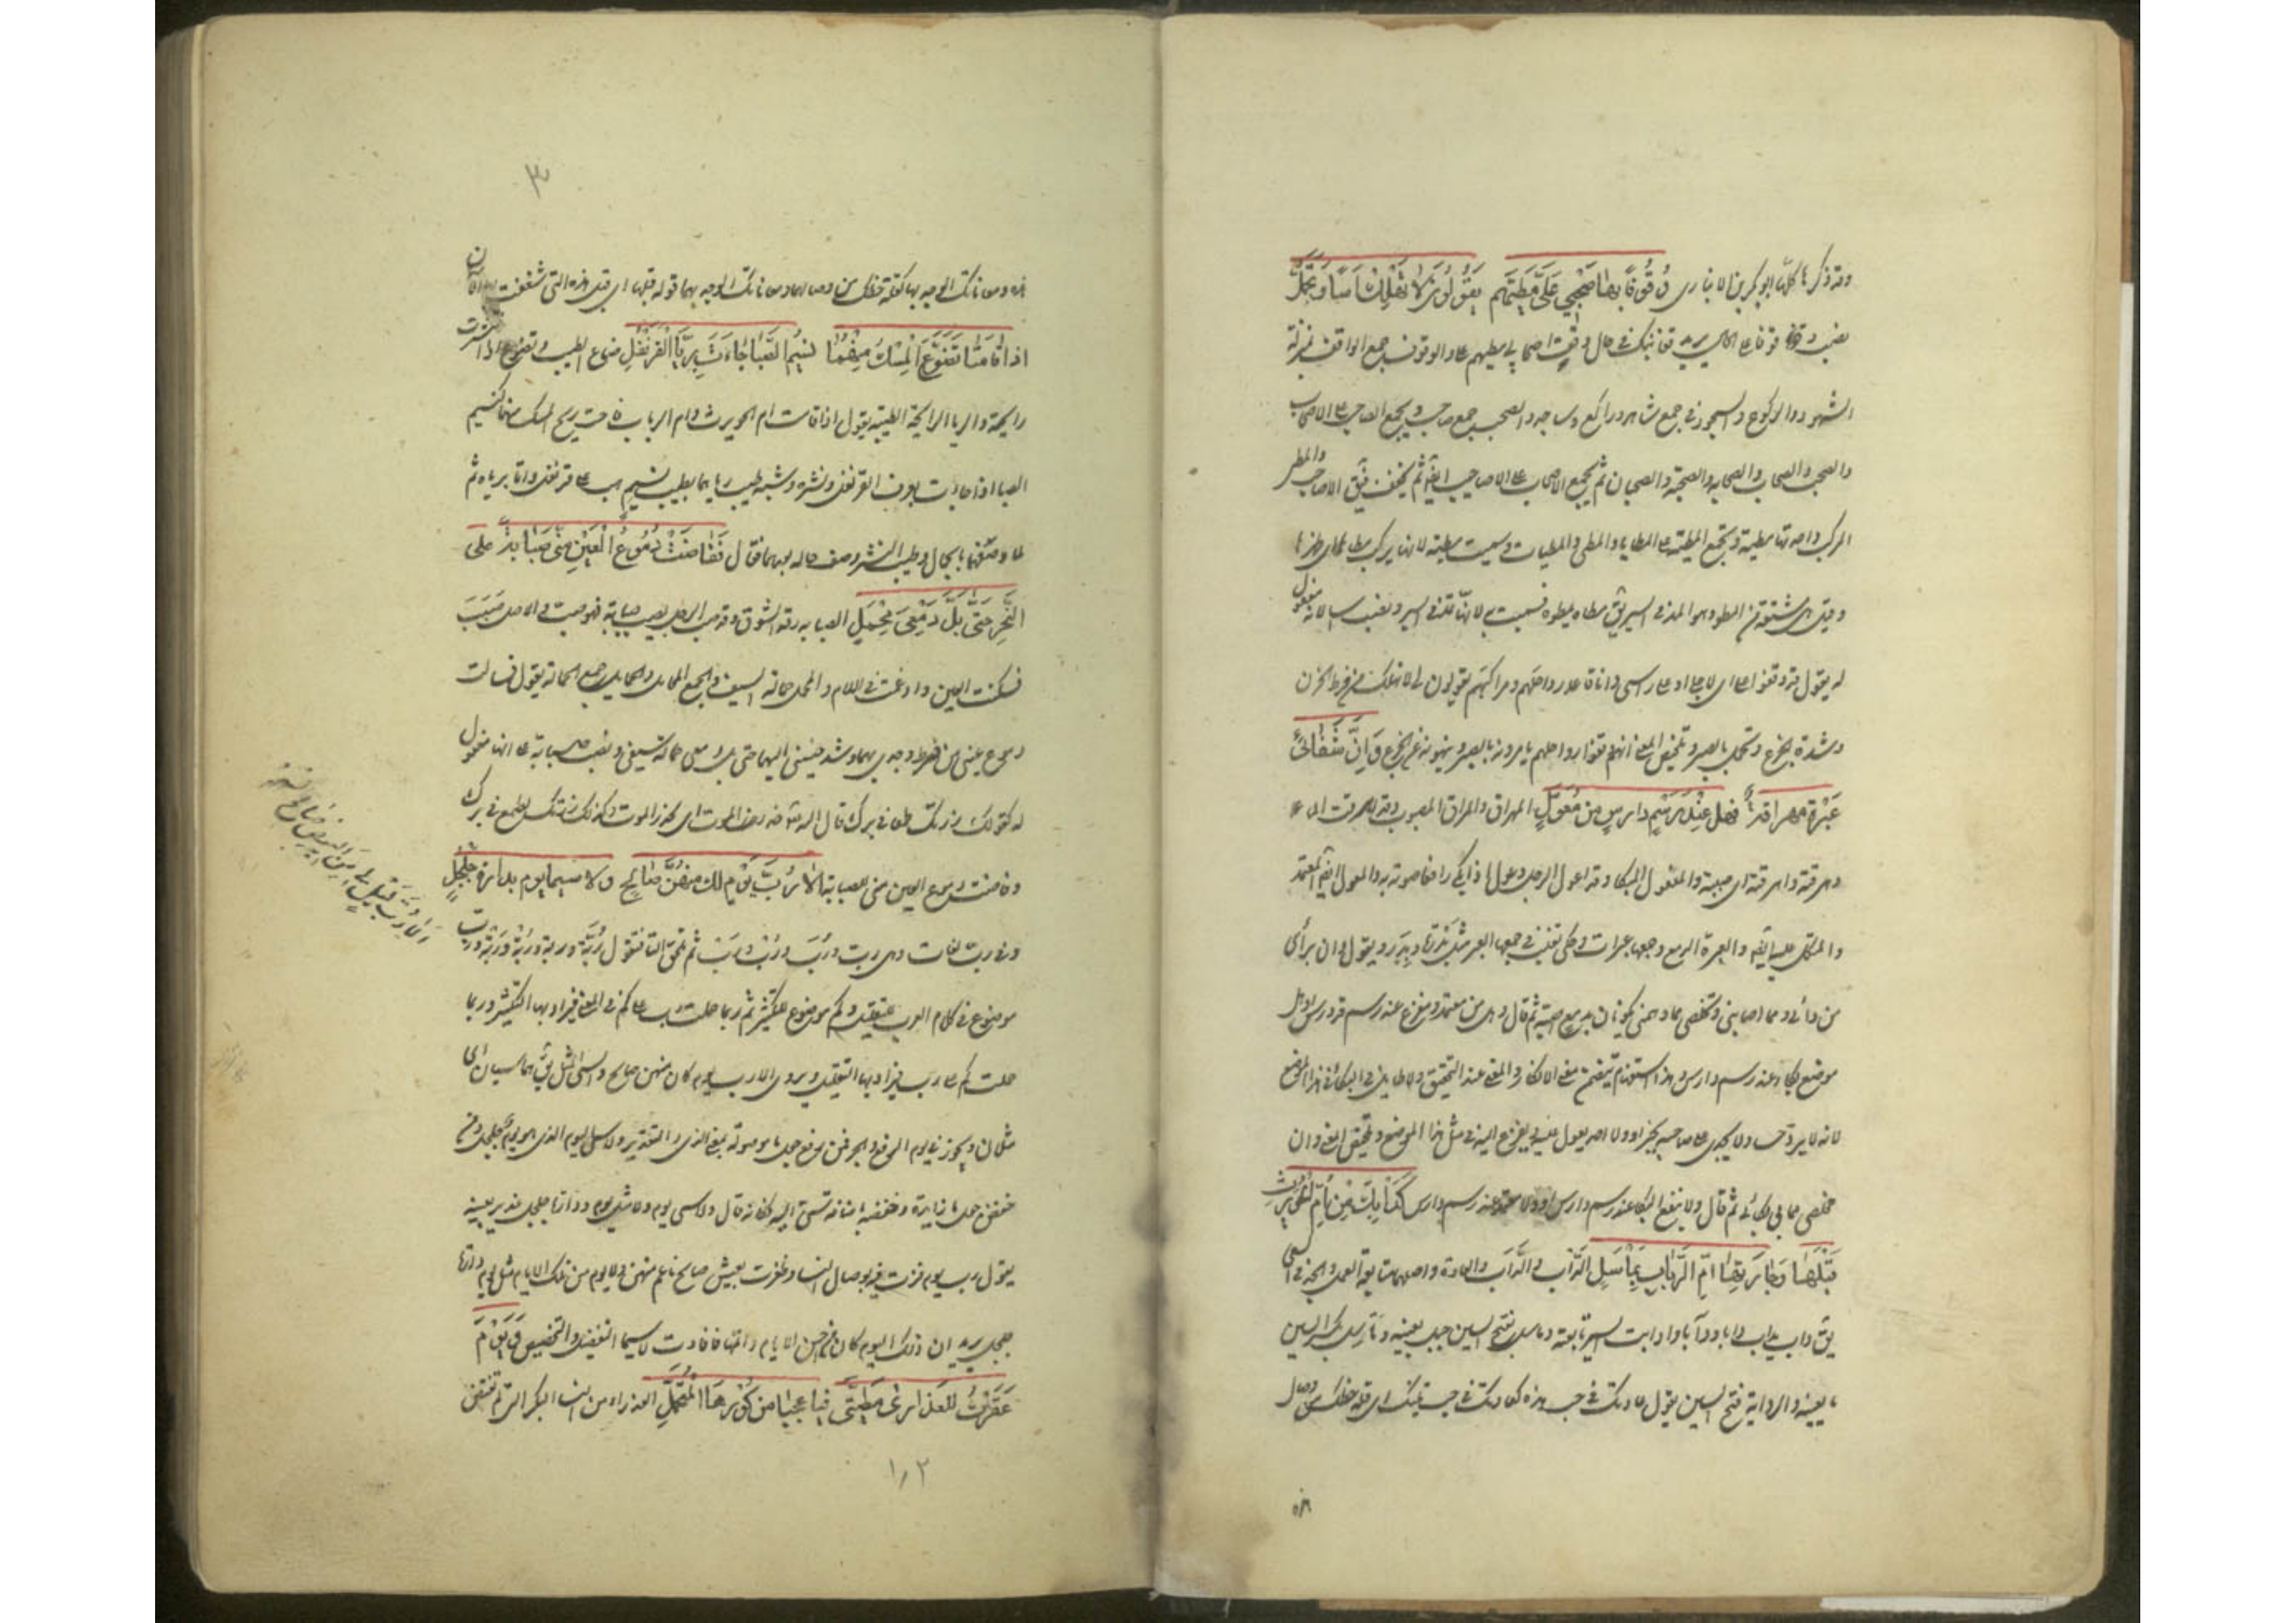 وقد ذكر هذا كله ابو بكر بن الانباري وُقُوفًا بها صَحْبِي عَلَيَّ مَطِيَّهُم يَقُولُونَ لا تَهْلِكْ اَسًى وَتَجَمَّلِ
نصب وقوفا على الحال يريد قفا نبك في حال وقوف اصحابي مطيهم على والوقوف جمع الواقف بمنزلة
الشهود والركوع والسجود في جمع شاهد وراكع وساجد والصحب جمع صاحب ويجمع الصاحب على الاصحاب
والصحب والصحاب والصحابه والصحبة والصحبان ثم يجمع الاصحاب على الاصاحيب ايضا ثم يخفف فيق الاصاحب والمطي
المركب واحدتها مطية وتجمع المطية على المطايا والمطي والمطيات وسميت مطية لانها يركب مطاها اى ظهرها
وقيل بل مشتقة من المطو وهو المد في السير يق مطاه يمطوه فسميت به لانها تمد في السير ونصب اسا لانه مفعول
له يقول قد وقفوا على اى لاجلى او على راسى وانا قاعد رواحلهم ومراكبهم يقولون لى لا تهلك من فرط الحزن
وشدة الجزع وتجمل بالصبر وتلخيص المعنى انهم وقفوا رواحلهم يامرونه بالصبر وينهونه عن الجزع وَاِنَّ شَفَائى
عَبْرَةٌ مهراقةٌ فهل عِنْدَ رَسْمٍ دارسٍ من مُعَوَّلِ المهراق والمراق المصبوب وقد ارقت الماء
وهرقته واهرقته اى صببته والمعول المبكا وقد اعول الرجل وعول اذا بكى رافعا صوته به والمعول ايضا المعتمد
والمتكل عليه ايضا والعبرة الدمع وجمعها عبرات وحكى ثعلب في جمعها العبر مثل بَدْرَة وبِدَر ويقول وان برائى
من دائى ومما اصابنى وتخلصى مما دهمنى يكون بان بدمع اصبه ثم قال وهل من معتمد ومفزع عند رسم قد درس او هل
موضع بكاء عند رسم دارس وهذا استفهام يتضمن معنى الانكار والمعنى عند التحقيق ولا طايل في البكا في هذا الموضع
لانه لا يرد حبيبا ولا يجدى على صاحبه بخير او ولا احد يعول عليه ويفزع اليه في مثل هذا الموضع وتلخيص المعنى وان
مخلصى مما بى بكائى ثم قال ولا ينفع البكا عند رسم دارس او ولا معتمد عند رسم دارس كَدَأْبِكَ مِنْ اُمِّ الحُوَيْرِثِ
قَبْلَهَا وَجَارَتِهَا اُمِّ الرَّبَابِ بِمَأْسَلِ الدَّأْب والدَّأَب والعادة واصلها متابعة العمل والجد في السعى
يق داب يداب دابا ودأبا ودؤوبا وادابت السير تابعته ومأسل بفتح السين جبل بعينه ومَأْسِل بكسر السين
ماء بعينه والرواية فتح السين يقول عادتك في حب هذه كعادتك في حب تينك اى قلة حظك من وصال
هذه
هذه ومعاناتك الوجد بها كقلة حظك من وصالهما ومعاناتك الوجد بهما قوله قبلها اى قبل هذه التى شغفت بها الآن
اذا قَامَتَا تَضَوَّعَ المِسْكُ مِنْهُمَا نَسِيمَ الصَّبَا جَاءَتْ بِرَيَّا القَرَنْفُلِ ضاع الطيب وتضوع اذا انتشرت
رايحته والريا الرايحة الطيبة يقول اذا قامت ام الحويرث وام الرباب فاحت ريح المسك منهما كنسيم
الصبا اذا جاءت بعرف القرنفل ونشره وشبه طيب رياهما بطيب نسيم هب على قرنفل واتى برياه ثم
لما وصفهما بالجمال وطيب النشر وصف حاله بعدهما فقال فَفَاضَتْ دُمُوعُ العَيْنِ مِنِّى صَبَابَةً على
النَّحْرِ حَتَّى بَلَّ دَمْعِىَ مِحْمَلِى الصبابه رقة الشوق وقد صب الرجل يصب صبابة فهو صب والاصل صَبِبَ
فسكنت العين وادغمت في اللام والمحمل حمالة السيف والجمع المحامل والحمايل جمع الحمالة يقول فسالت
دموع عينى من فرط وجدى بهما وشدة حنينى اليهما حتى بل دمعى حمالة سيفى ونصب صبابة على انها مفعول
له كقولك زرتك طمعا في برك قال الله تع حذر الموت اى لحذر الموت وكذلك زرتك للطمع في برك
وفاضت دموع العين منى للصبابة اَلا رُبَّ يَوْمٍ لك مِنْهُنَّ صَالِحٍ ولا سيما يومٍ بدارة جُلْجُلٍ
وفى رب لغات وهى رب ورُبَ ورَبْ ورَبَ ثم تلحق التا فتقول رُبَّة وربة ورَبْة ورَبَّة ورب
موضوع فى كلام العرب للتقليل وكم موضوع للتكثير ثم ربما حملت رب على كم فى المعنى فيراد بها التكثير وربما
حملت كم على رب فيراد بها التقليل ويروى الا رب يوم كان منهن صالح والسى المثل يق هما سيان اى
مثلان ويجوز في يوم الرفع والجر فمن رفع جعل ما موصولة بمعنى الذى والتقدير ولا سى اليوم الذى هو يوم بدارة جلجل ومن
خفض جعل ما زايدة وخفضه باضافة سى اليه فكانه قال ولا سى يوم ولا مثل يوم ودارة جلجل غدير بعينه
يقول رب يوم فزت فيه بوصال النسا وظفرت بعيش صالح ناعم منهن ولا يوم من تلك الايام مثل يوم دارة
جلجل يريد ان ذلك اليوم كان احسن الايام واتمها فافادت لا سيما التفضيل والتخصيص وَيَوْمَ
عَقَرْتُ للعَذارى مَطِيَّتى فيا عجبًا من كُورِهَا المُتَحَمَّلِ العذراء من النسا البكر التى لم تفتض